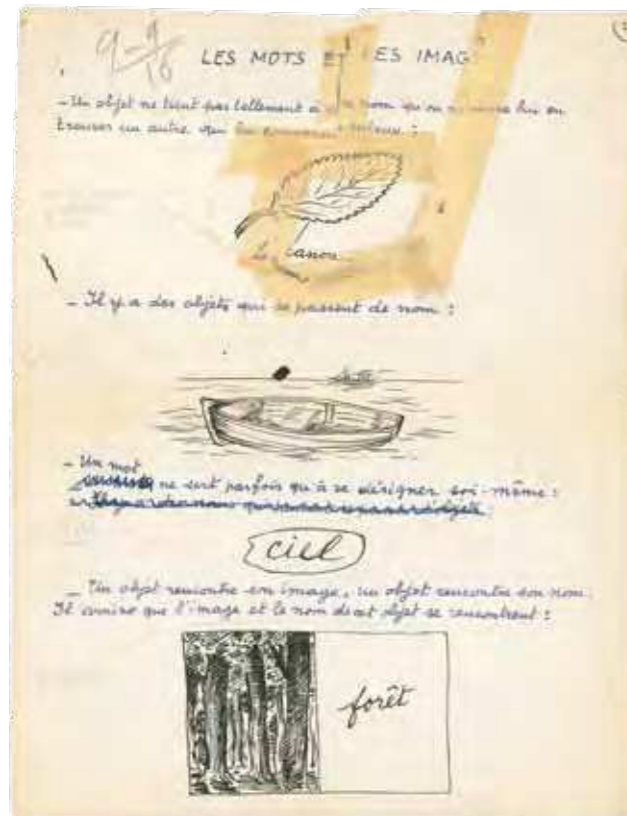 9-9
16
LES MOTS ET LES IMAG
- Un objet ne tient pas tellement à son nom qu'on ne puisse lui en
trouver un autre qui lui convienne mieux :
Le canon
- Il y a des objets qui se passent de nom :
- Un mot
ne sert parfois qu'à se désigner soi-même :
ciel
- Un objet rencontre son image, un objet rencontre son nom.
Il arrive que l'image et le nom de cet objet se rencontrent :
forêt